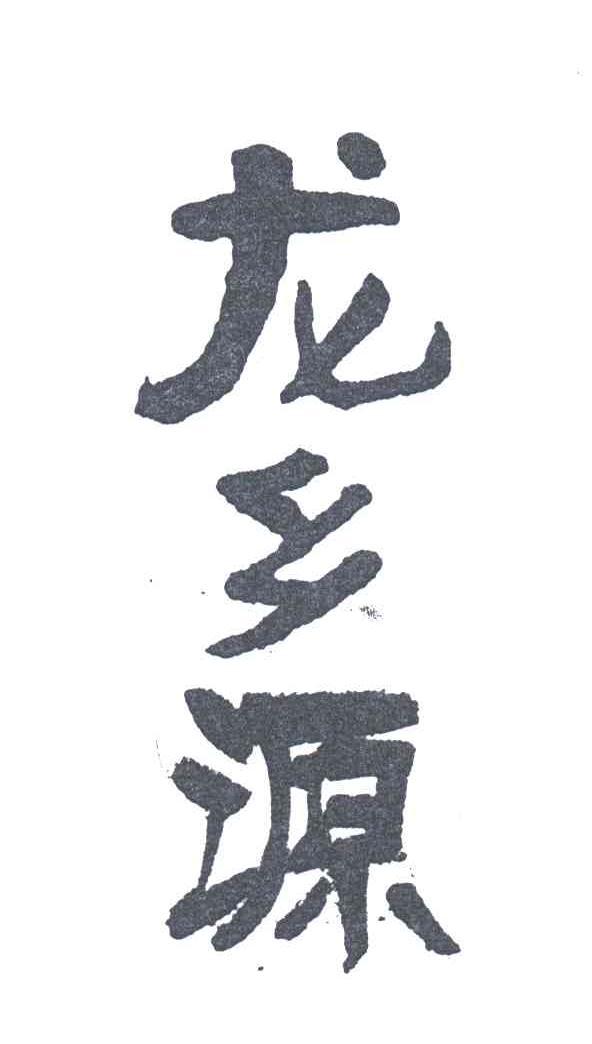 龙乡源